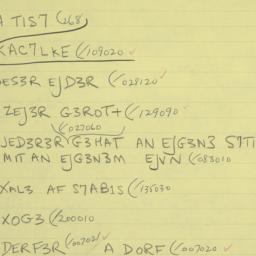 A TIS7 (268)
KAC7LKE (109020
DES3R EJD3R (028120
ZEJ3R G3ROT+ (129090
(027060
JED3R3R G3HAT AN EJG3N3 S7TI
MIT AN EJG3N3M EJVN (083010
XAL3 AF S7AB1S (135030
XOG3 (200010
DERF3R (007021 A DORF (007020